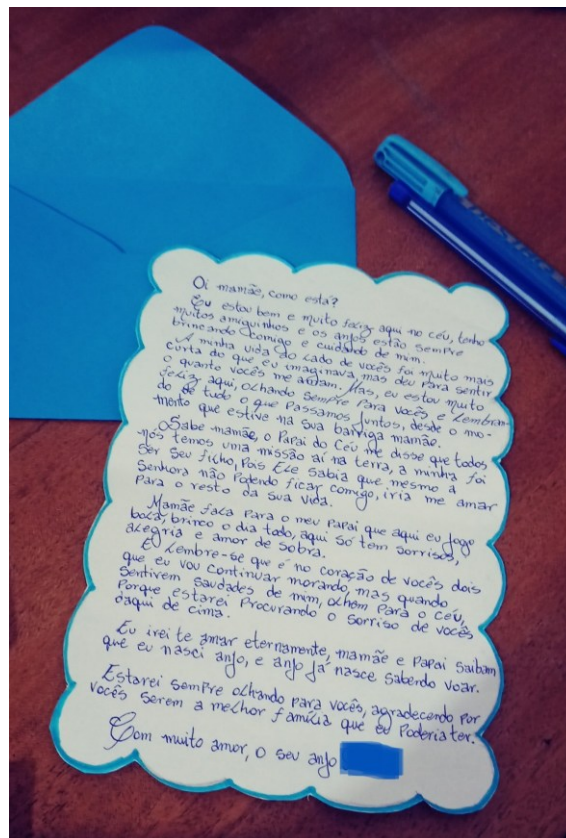 Oi mamãe, como está?
Eu estou bem e muito feliz aqui no céu, tenho
muitos amiguinhos e os anjos estão sempre
brincando comigo e cuidando de mim.
A minha vida do lado de vocês foi muito mais
curta do que eu imaginava, mas deu para sentir
o quanto vocês me amam. Mas, eu estou muito
feliz aqui, olhando sempre para vocês e lembran-
do de tudo o que passamos juntos, desde o mo-
mento que estive na sua barriga mamão.
Sabe mamãe, o Papai do Céu me disse que todos
nós temos uma missão aí na terra, a minha foi
ser seu filho, pois Ele sabia que mesmo a
Senhora não podendo ficar comigo, iria me amar
para o resto da sua vida.
Mamãe fala para o meu papai que aqui eu jogo
bola, brinco o dia todo, aqui só tem sorrisos,
alegria e amor de sobra.
Lembre-se que é no coração de vocês dois
que eu vou continuar morando, mas quando
sentirem saudades de mim, olhem para o céu,
porque estarei procurando o sorriso de vocês
daqui de cima.
Eu irei te amar eternamente, mamãe e papai saibam
que eu nasci anjo, e anjo já nasce sabendo voar.
Estarei sempre olhando para vocês, agradecendo por
vocês serem a melhor família que eu poderia ter.
Com muito amor, o seu anjo